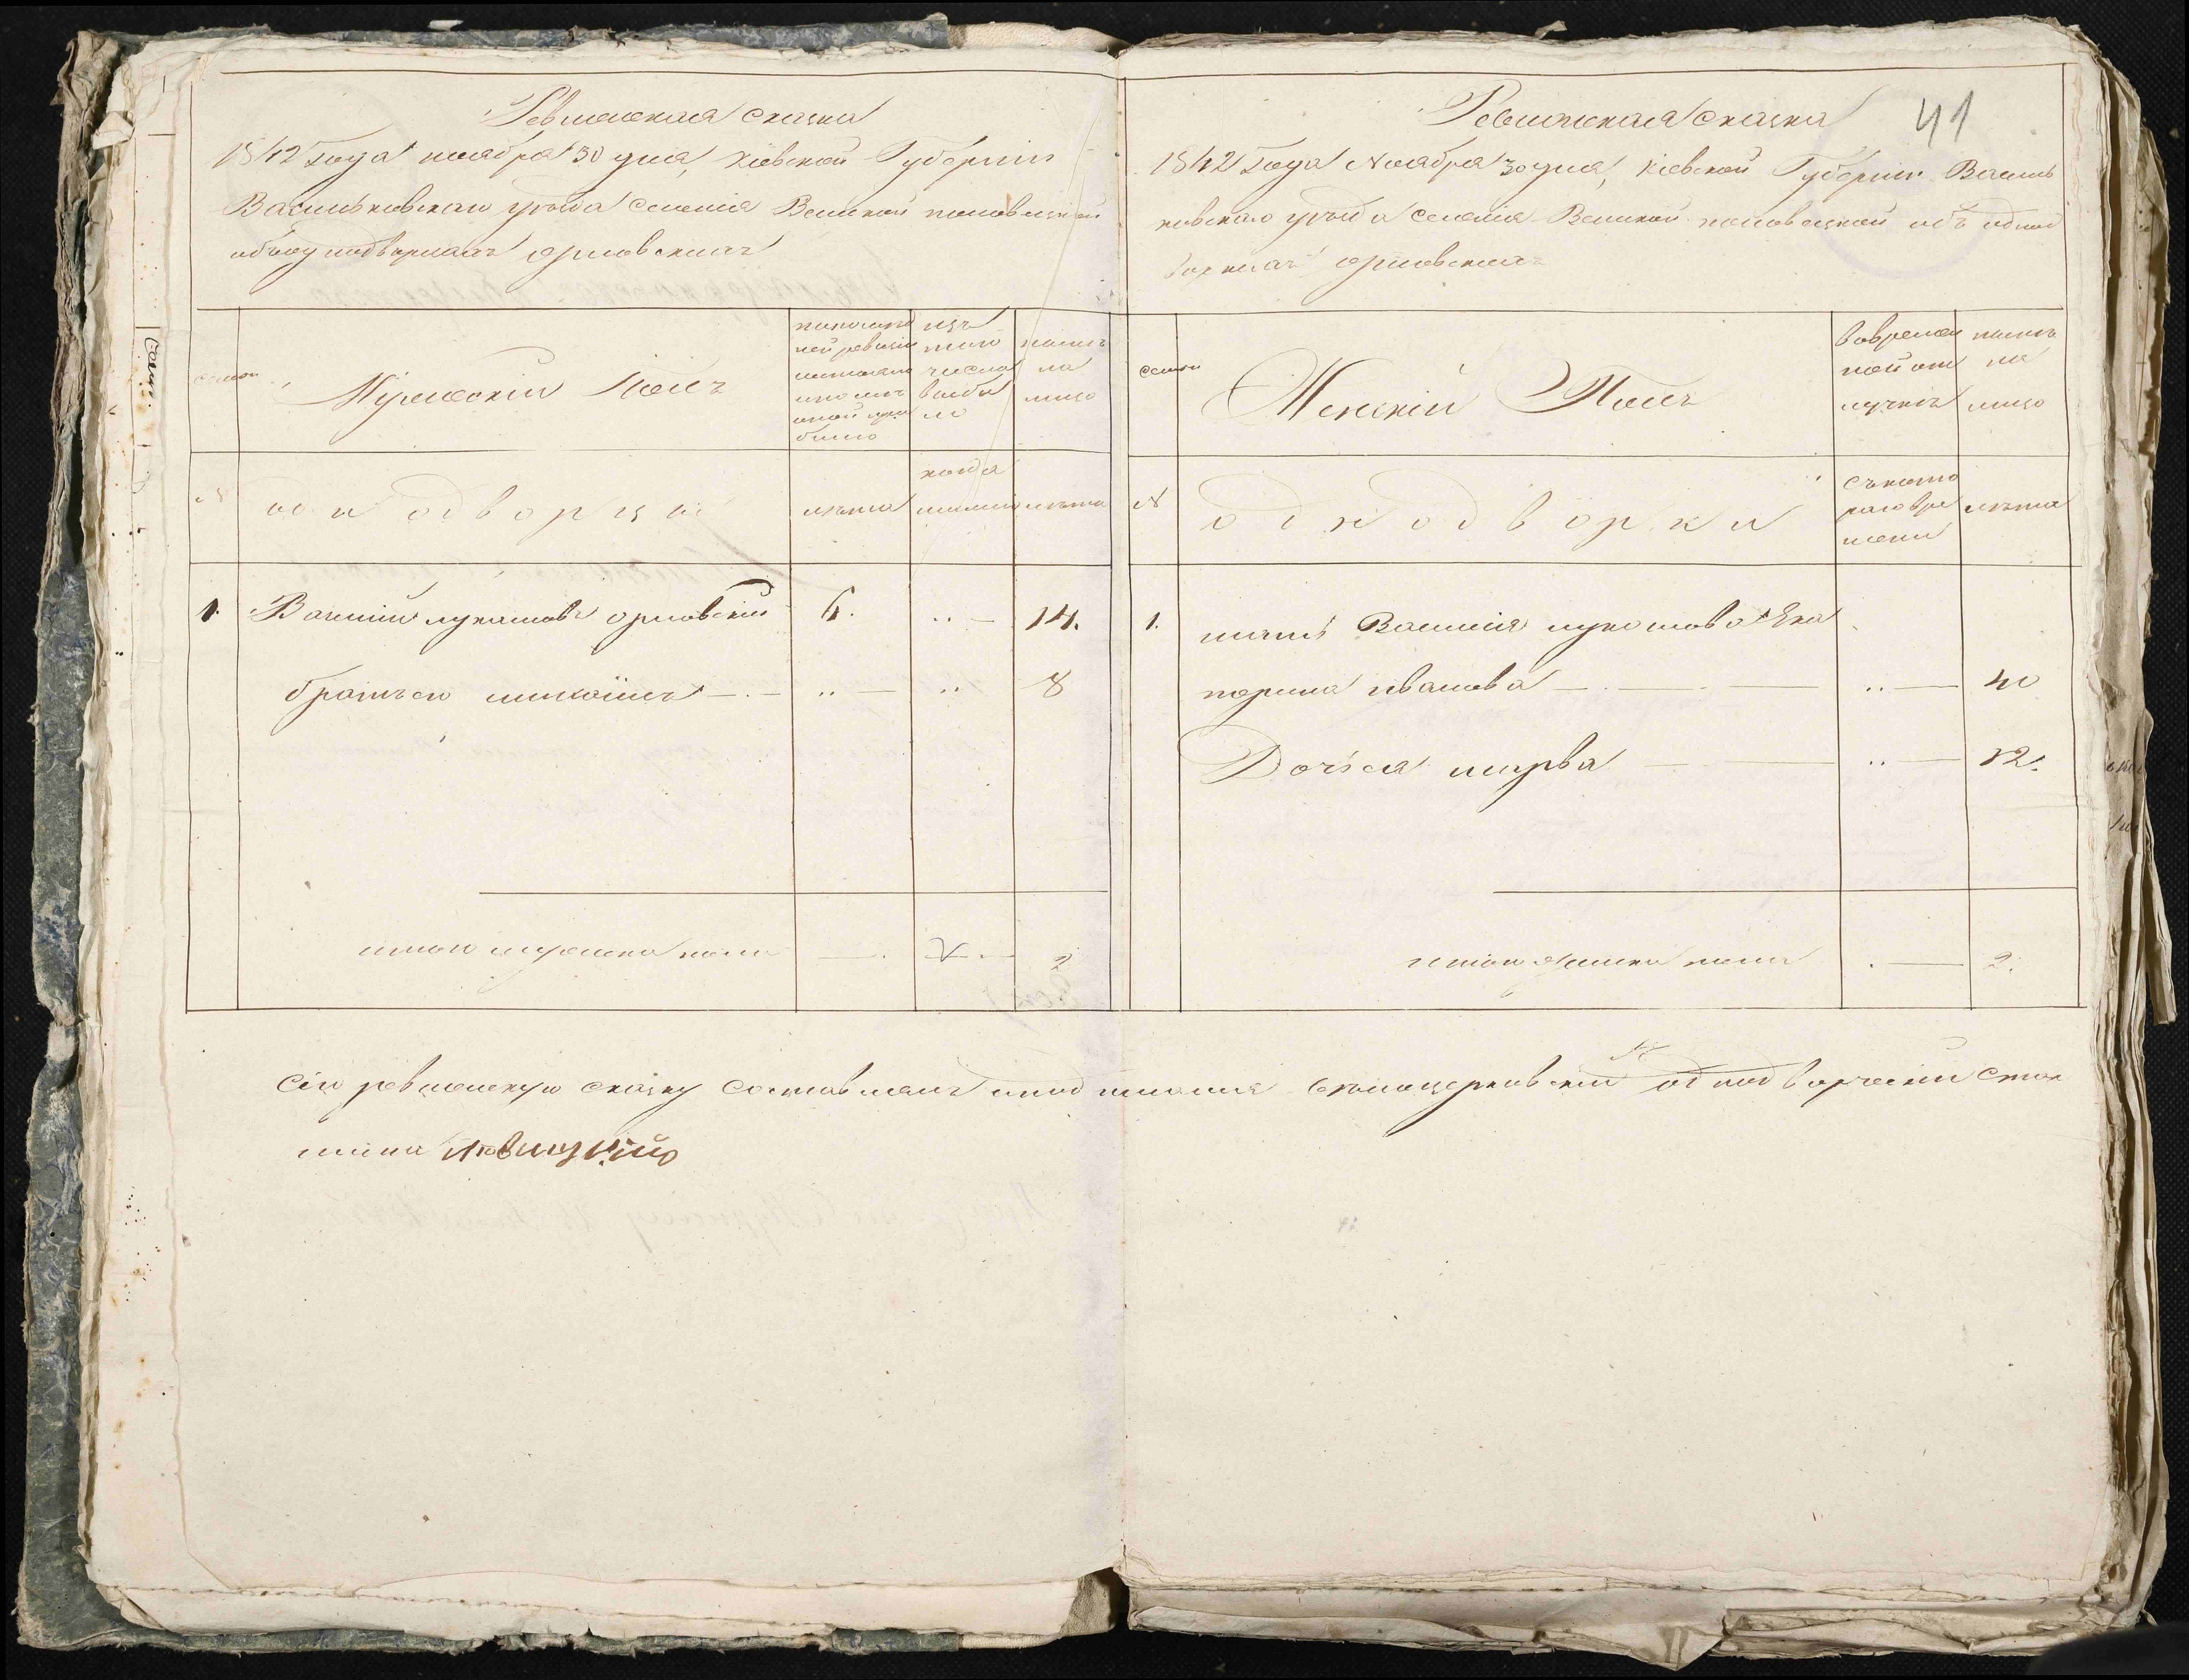 Ревижская сказка
1842 года ноября 30 дня, Кіевской Губерніи
Васильковскаго уѣзда селенія Великой половецкой
объ однодворцахъ орловскихъ
семьи
Мужескій Полъ
по послѣд
ней ревизіи
состояло
было
изъ
того
числа
выбы
ло
нынѣ
на
лицо
№
однодворцы
лѣта
когда
лѣта
1. Василий лукашовъ орловскій 6. .. — 14.
братъ его михайлъ — .. — .. 8
итого мужеска пола — . — . — 2
Ревижская сказка
41
1842 года Ноября 30 дня, Кіевской Губерніи Василь
ковскаго уѣзда селенія Великой половецкой объ одно
дворцахъ орловскихъ
семьи
Женскій Полъ
во времен
ной от
лучкѣ
нынѣ
на
лицо
№
однодворки
съ кото
раго вре
мени
лѣта
1. мать Василія лукашова Ека
терина иванова — .. — 40
Дочь ея — .. — 12.
итого женска пола . — 2.
Сію ревижскую сказку составилъ и подписалъ бѣлоцерковскій однодворческій стар
шина